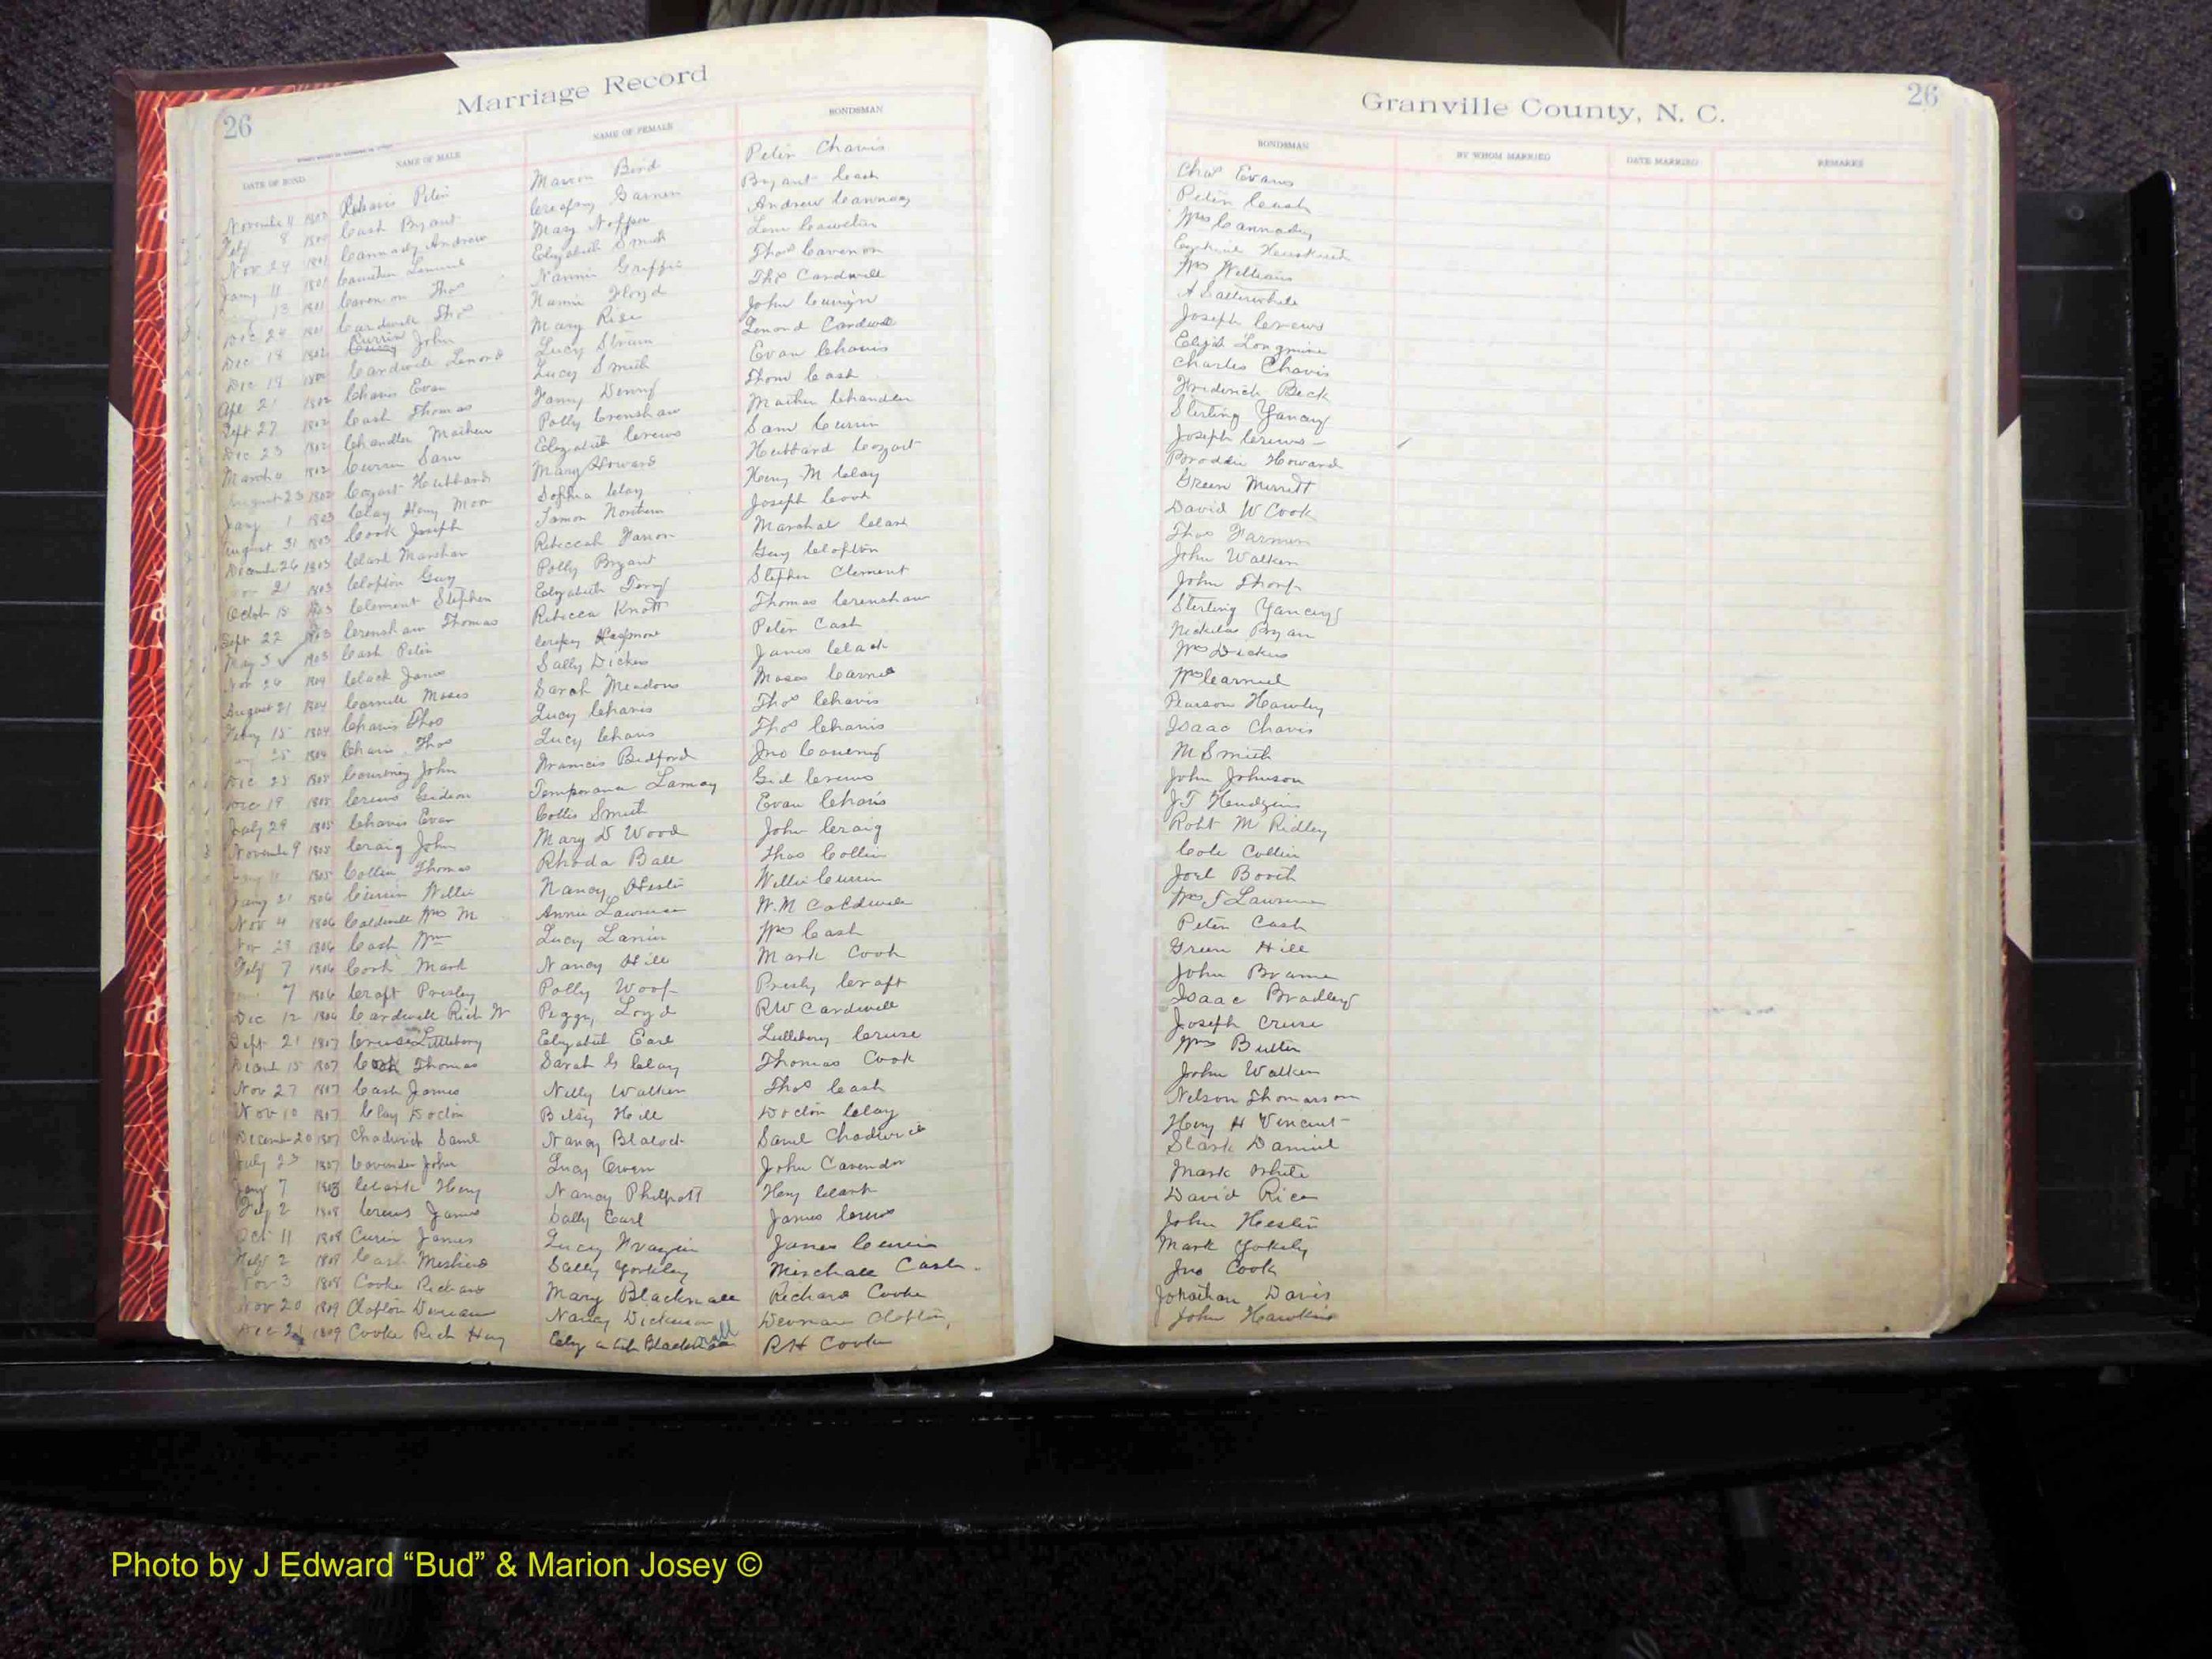 Marriage Record
26
DATE OF BOND NAME OF MALE NAME OF FEMALE BONDSMAN
November 4 Chavis Peter Mason Bird Peter Chavis
Feby 8 Cash Bryant Garner Bryant Cash
Nov 24 1801 Cannady Andrew Mary Andrew Cannady
Jany 11 1801 Elizabeth Smith
13 1801 Thos Nannie Griffin Thos
Dec 24 1801 Cardwell Thos Nannie Floyd Thos Cardwell
Dec 18 1802 Currin John Mary Rise John
Dec 18 Cardwell Lenord Lucy Strum Lenord Cardwell
Apl 21 1802 Chavis Evan Lucy Smith Evan Chavis
Sept 27 1802 Cash Thomas Fanny Denny Thom Cash
Dec 23 1802 Chandler Polly Crenshaw Chandler
March 1802 Currin Sam Elizabeth Crews Sam Currin
August 23 1802 Cozart Hubbard Mary Howard Hubbard Cozart
Jany 1 1803 Clay Heny Moor Sophia Clay Heny M Clay
August 31 1803 Cook Joseph Northern Joseph Cook
December 26 1803 Clark Marshal Rebeccah Marshal Clark
21 1803 Clopton Guy Polly Bryant Guy Clopton
October 18 1803 Clement Stephen Elizabeth Terry Stephen Clement
Sept 22 1803 Crenshaw Thomas Rebecca Knott Thomas Crenshaw
May 3 ✓ 1803 Cash Peter Peter Cash
Nov 26 1804 Clack James Sally Dickens James Clack
August 21 1804 Moses Sarah Meadows Moses
15 1804 Chavis Thos Lucy Chavis Thos Chavis
25 1804 Chavis Thos Lucy Chavis Thos Chavis
Dec 23 1805 Courtney John Francis Bedford Jno
Dec 19 1805 Crews Gideon Temperance Lamay Gid Crews
July 29 1805 Chavis Evan Smith Evan Chavis
November 9 1805 Craig John Mary D Wood John Craig
1805 Collin Thomas Rhoda Ball Thos Collin
Jany 21 1806 Currin Willie Nancy Heslin Willie Currin
Nov 4 1806 Caldwell Wm M Annie Lawrence W.M Caldwell
Nov 29 1806 Cash Wm Lucy Lanier Wm Cash
Feby 7 1806 Cook Mark Nancy Hill Mark Cook
7 1806 Craft Presley Polly Presly Craft
Dec 12 1806 Cardwell Rich W Peggy Loyd RW Cardwell
Sept 21 1807 Cruse Littlebery Elizabeth Earl Cruse
15 1807 Cook Thomas Sarah G Clay Thomas Cook
Nov 27 1807 Cash James Nelly Walker Thos Cash
Nov 10 1807 Clay Doctor Betsy Hill Doctor Clay
December 20 1807 Chadwick Saml Nancy Blalock Saml Chadwick
July 23 1807 Cavender John Lucy Owen John Cavender
Jany 7 Clark Heny Nancy Philpott Heny Clark
Feby 2 1808 Crews James Sally Earl James Crews
Oct 11 1808 Currin James Lucy James Currin
Feby 2 1808 Cash Sally Yorkley Mischale Cash
Nov 3 1808 Cooke Richard Mary Blacknall Richard Cooke
Nov 20 1809 Clopton Nancy Dickerson Clopton
Dec 1809 Cooke Rich Heny Blacknall RH Cooke
Granville County, N. C.
26
BONDSMAN BY WHOM MARRIED DATE MARRIED REMARKS
Chas Evans
Peter Cash
Wm Cannady
Wm Williams
A Satterwhite
Joseph Crews
Longmire
Charles Chavis
Frederick Beck
Sterling Yancey
Joseph Crews
Broddie Howard
Green Merritt
David W Cook
Thos Farmer
John Walker
John Thorp
Sterling Yancey
Nickelas Bryan
Wm Dickens
Wm
Pearson Hawley
Isaac Chavis
M Smith
John Johnson
JT
Robt M Ridley
Cole Collin
Joel Booth
Wm T Lawrence
Peter Cash
Green Hill
John Brame
Isaac Bradley
Joseph Cruse
Wm Butler
John Walker
Nelson Thomasson
Heny H Vincent
Daniel
Mark White
David Rice
John Heslin
Mark Yokely
Jno Cook
Jonathan Davis
John Hawkins
Photo by J Edward “Bud” & Marion Josey ©